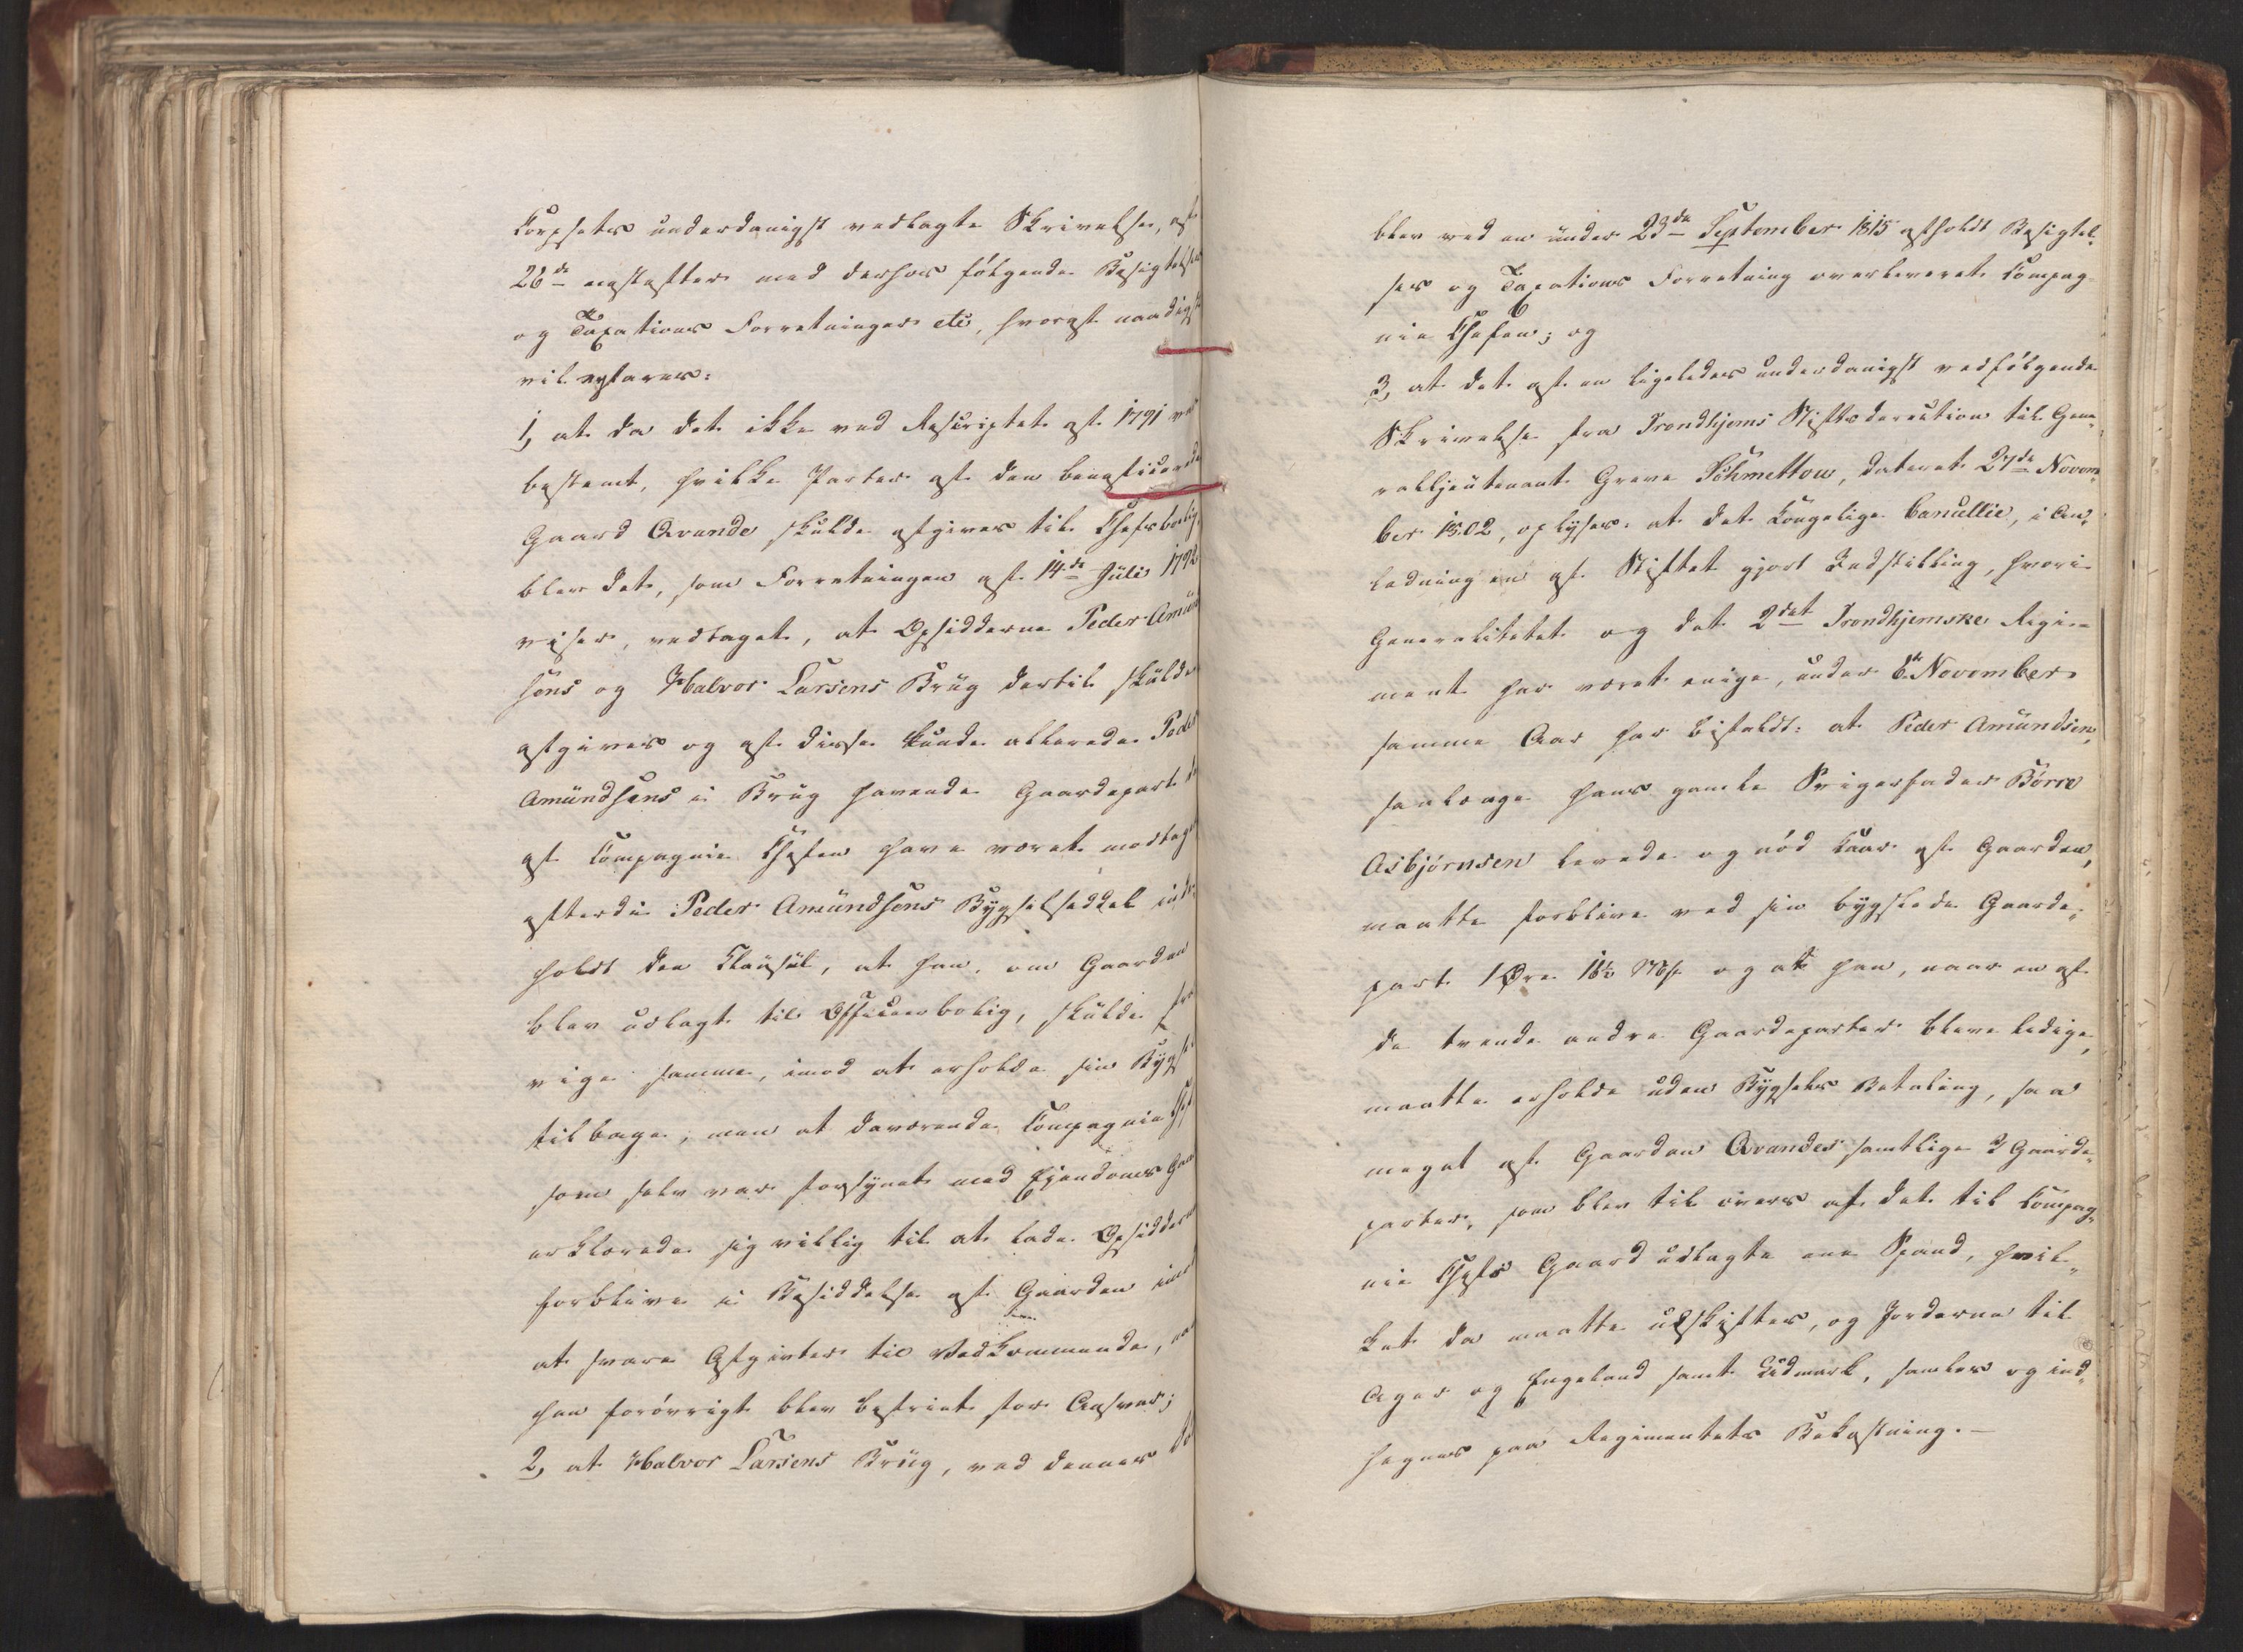 Corpsets underdanigst vedlagte Skrivelse, af
26de næstefter med derhos følgende Besigtelses
og Taxations Forretninger etc, hvoraf naadigst
vil erfares:
1, at da det ikke ved Rescriptet af 1791 var
bestemt, hvilke Parter af den beneficerede
Gaard Qvande skulde afgives til Chefsbolig,
blev det, som Forretningen af 14de Juli 1792
viser, vedtaget, at Opsidderne Peder Amund
sens og Halvor Larsens Brug dertil skulde
afgives og af disse kunde allerede Peder
Amundsens i Brug havende Gaardepart
af Compagnie Chefen have været modtaget
efterdi Peder Amundsens Bygselseddel inde
holdt den Clausul, at han, om Gaarden
blev udlagt til Officeerbolig, skulde fra
vige samme, imod at erholde sin Bygsel
tilbage, men at daværende Compagnie Chef
som selv var forsynet med Ejendoms Gaard
erklærede sig villig til at lade Opsidderne
forblive i Besiddelse af Gaarden imod
at svare Afgivter til Vedkommende,
han forøvrigt blev befriet for Ansvar;
2, at Halvor Larsens Brug, ved dennes Død
blev ved en under 23de September 1815 afholdt Besigtel„
ses og Taxations Forretning overleveret Compag„
nie Chefen; og
3, at det af en ligeledes underdanigst vedfølgende
Skrivelse fra Trondhjems Stiftsdirection til Gene„
ralljeutenant Greve Schmettow, dateret 27de Novem„
ber 1802, oplyses: at det Kongelige Cancellie, i An„
ledning en af Stiftet gjort Indstilling, hvori
Generalitetet og det 2det Trondhjemske Regi„
ment har været enige, under 6te November
samme Aar har bifaldt: at Peder Amundsen,
saalænge hans gamle Svigerfader Børre
Asbjørnsen levede og nød Kaar af Gaarden,
maatte forblive ved sin bygslede Gaarde„
part 1 Øre 16½ Mk og at han, naar en af
de tvende andre Gaardeparter bleve ledige,
maatte erholde uden Bygsels Betaling, saa
meget af Gaarden Qvandes samtlige 3 Gaarde„
parter, som blev til overs af det til Compag„
nie Chefs Gaard udlagte ene Spand, hvil„
ket da maatte udskiftes, og Jorderne til
Ager og Engeland samt Udmark, samles og ind„
hegnes paa Regimentets Bekostning.—